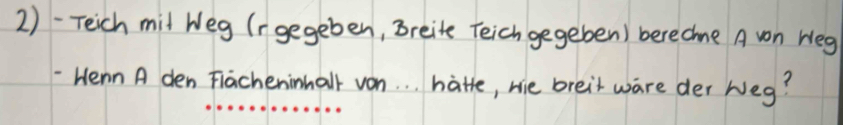 2) - Teich mit Weg (r gegeben, Breite Teich gegeben) berechne A von Weg
- Wenn A den Flächeninhalt von ... hätte, wie breit wäre der Weg?